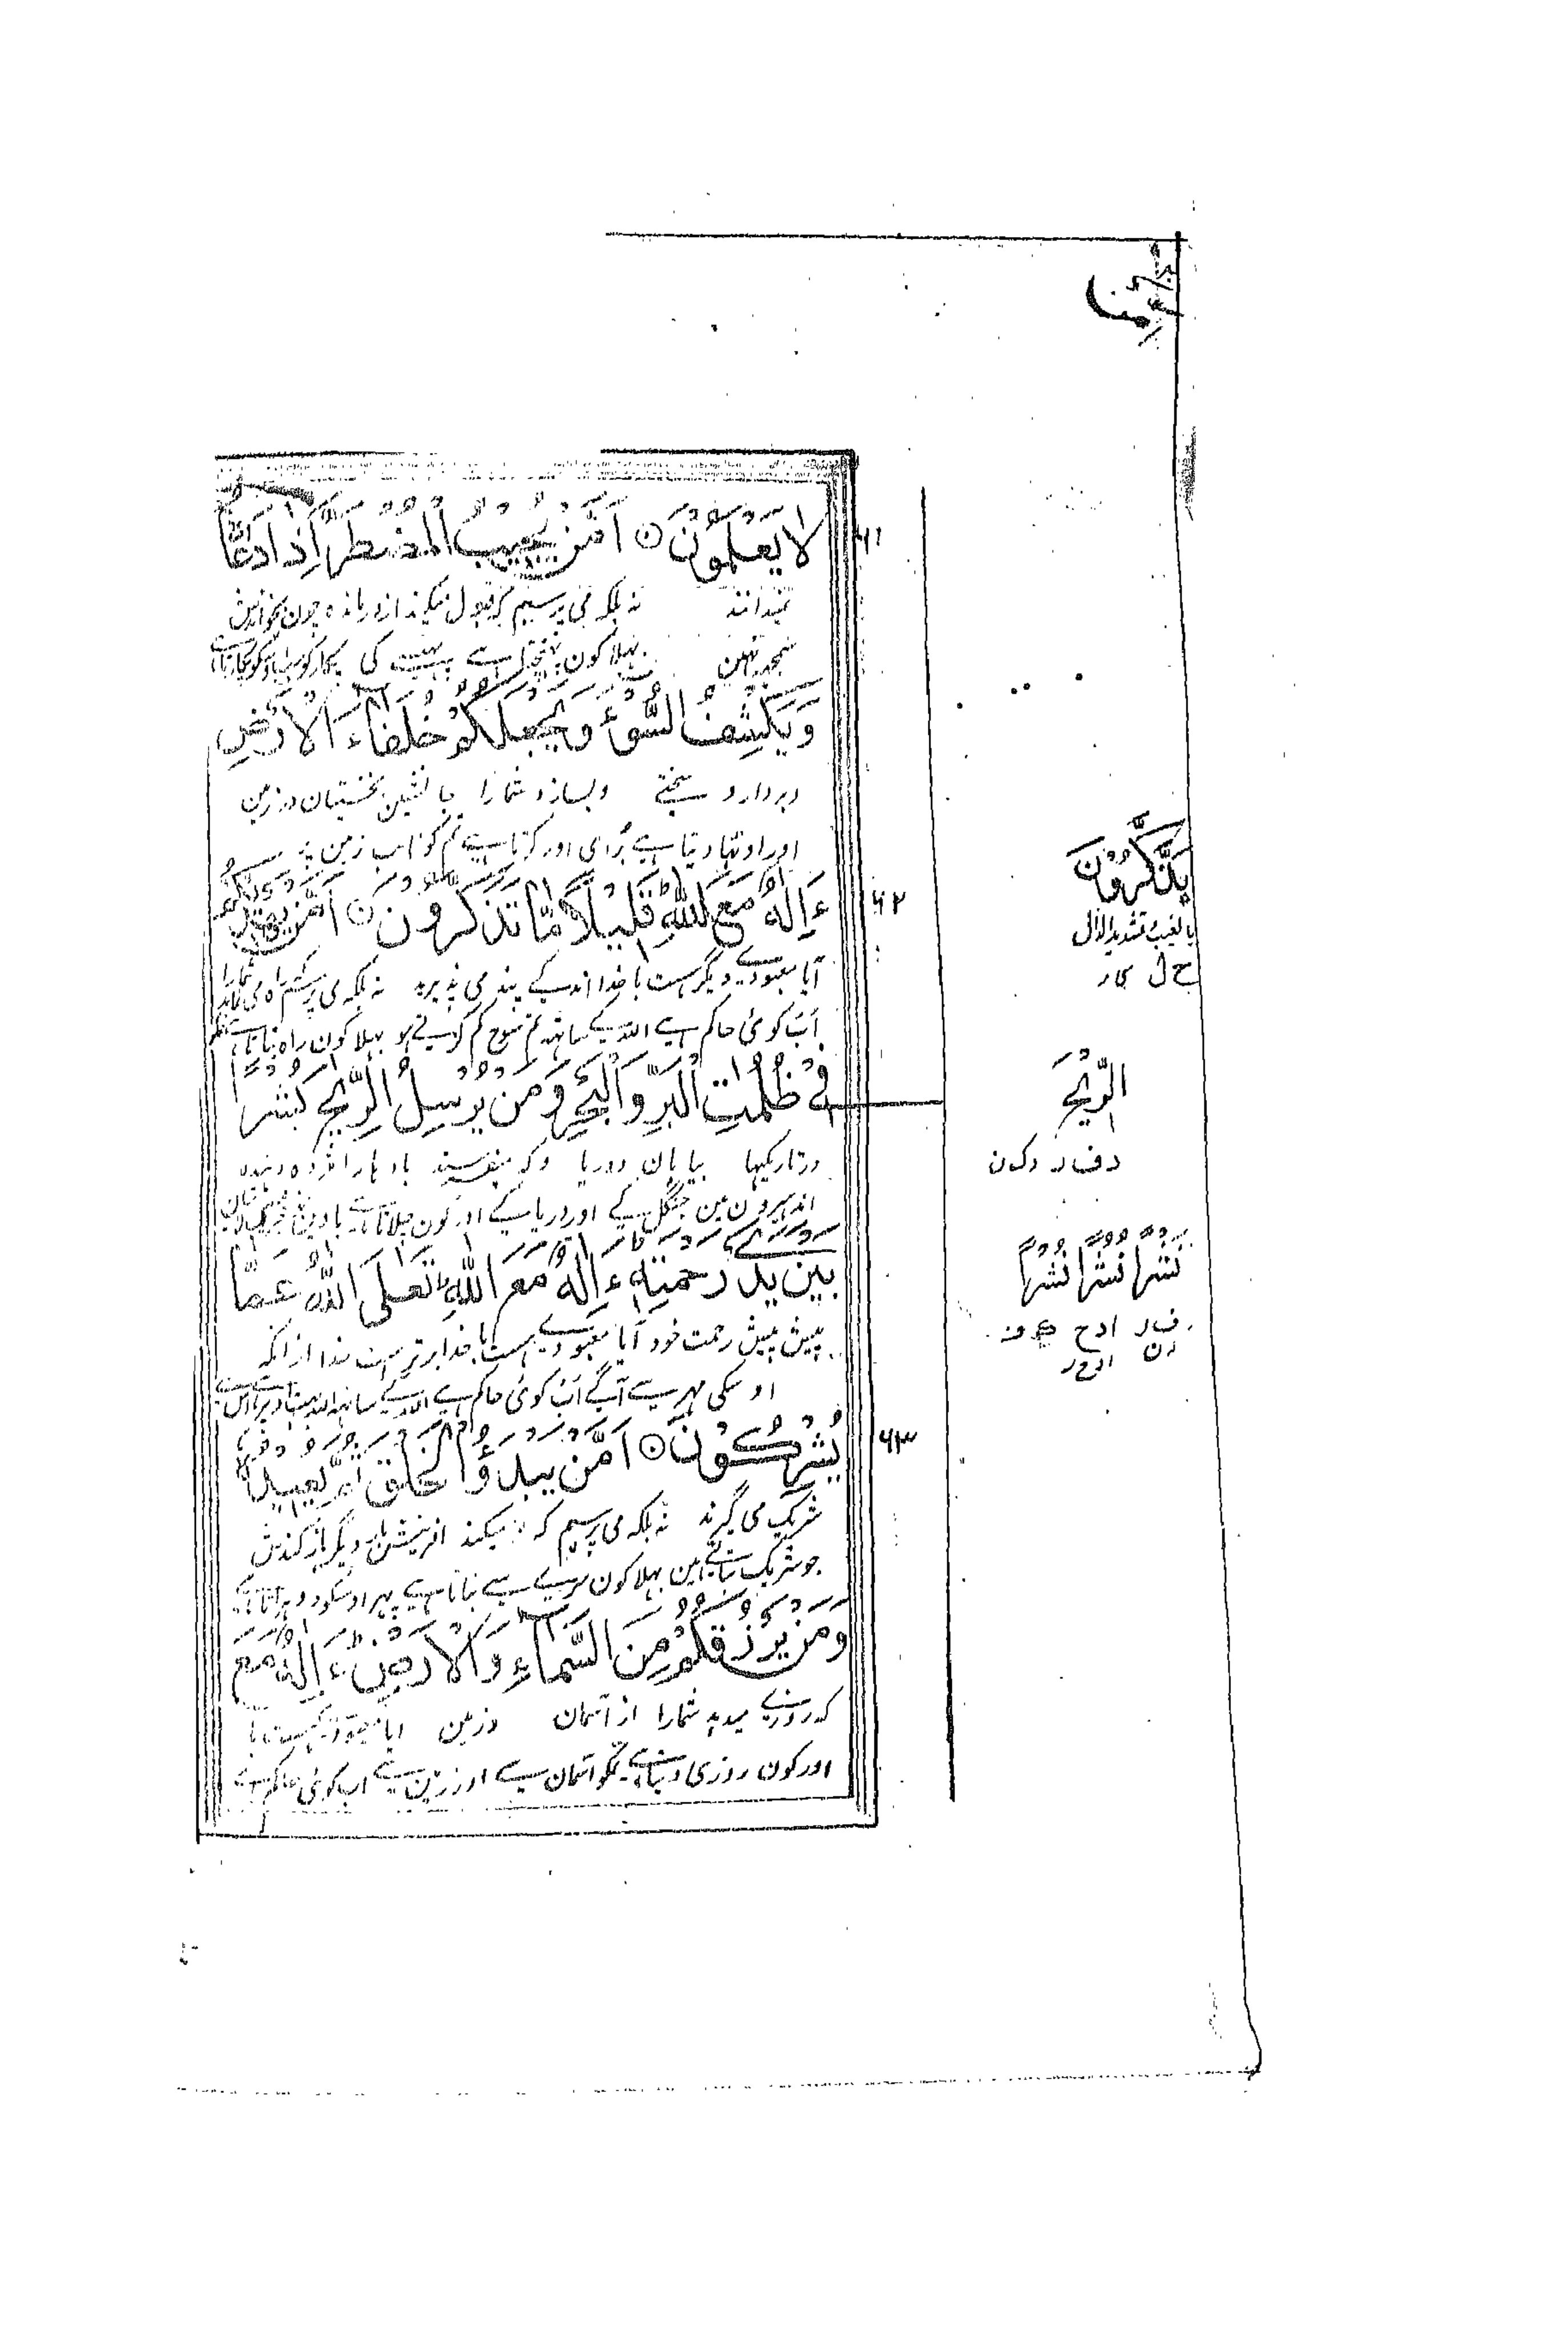 لَا يَعْلَمُوْنَ ۞ اَمَّنْ يُّجِيْبُ الْمُضْطَرَّ اِذَا دَعَا ٦١
نمیدانند نہ بلکہ می پرسیم کہ قبول میکند از درماندہ چون بخواندش
سمجھہ نہین بہلا کون پہنچتا ہے کی پکار کو
وَيَكْشِفُ السُّوْٓءَ وَيَجْعَلُكُمْ خُلَفَآءَ الْاَرْضِ
وبردارد سختی وبسازد شمارا جانشین نخستیان در زمین
اور اوٹہا دیتا ہے بُرای اور کرتا ہے تم کو نایب زمین پر
ءَاِلٰهٌ مَّعَ اللّٰهِ قَلِيْلًا مَّا تَذَكَّرُوْنَ ۞ اَمَّنْ يَّهْدِيْكُمْ ٦٢
آیا معبودے دیگر ہست با خدا اندکے پند می پذیرید نہ بلکہ می پرسم کہ راہ می نماید شمارا
اَبْ کوئی حاکم ہے اللہ کے ساتہہ تم سوچ کم کرتے ہو بہلا کون راہ بتاتا ہے
فِيْ ظُلُمٰتِ الْبَرِّ وَالْبَحْرِ وَمَنْ يُّرْسِلُ الرِّيٰحَ بُشْرًا
در تاریکیہا بیابان ودریا وکہ میفرستد بادہارا مژدہ دہندہ
اندہیرون مین جنگل کے اور دریا کے اور کون چلاتا ہے بادین
بَيْنَ يَدَيْ رَحْمَتِهٖ ءَاِلٰهٌ مَّعَ اللّٰهِ تَعٰلَى اللّٰهُ عَمَّا
پیش پیش رحمت خود آیا معبودے ہست با خدا برتر ہست خدا از انکہ
اوسکی مہر سے آگے اَبْ کوئی حاکم ہے اللہ کے ساتہہ اللہ بہت اوپر ہے اس سے
يُشْرِكُوْنَ ۞ اَمَّنْ يَّبْدَؤُا الْخَلْقَ ثُمَّ يُعِيْدُهٗ ٦٣
شریک می گیرند نہ بلکہ می پرسیم کہ میکند افرینش بار دیگر باز کندش
جو شریک بتاتے ہین بہلا کون سرے سے بناتا ہے پہر اوسکو دوہراتا ہے
وَمَنْ يَّرْزُقُكُمْ مِّنَ السَّمَآءِ وَالْاَرْضِ ءَاِلٰهٌ مَّعَ
کہ روزی میدہد شمارا از آسمان وزمین ایا معبودے ہست با
اور کون روزی دیتا ہے تمکو آسمان سے اور زمین سے اب کوئی حاکم ہے
يَذَّكَّرُوْنَ
بالغیب وتشدید الذال
ح ل
الرِّيْحَ
نَشْرًا نُشْرًا نُشُرًا